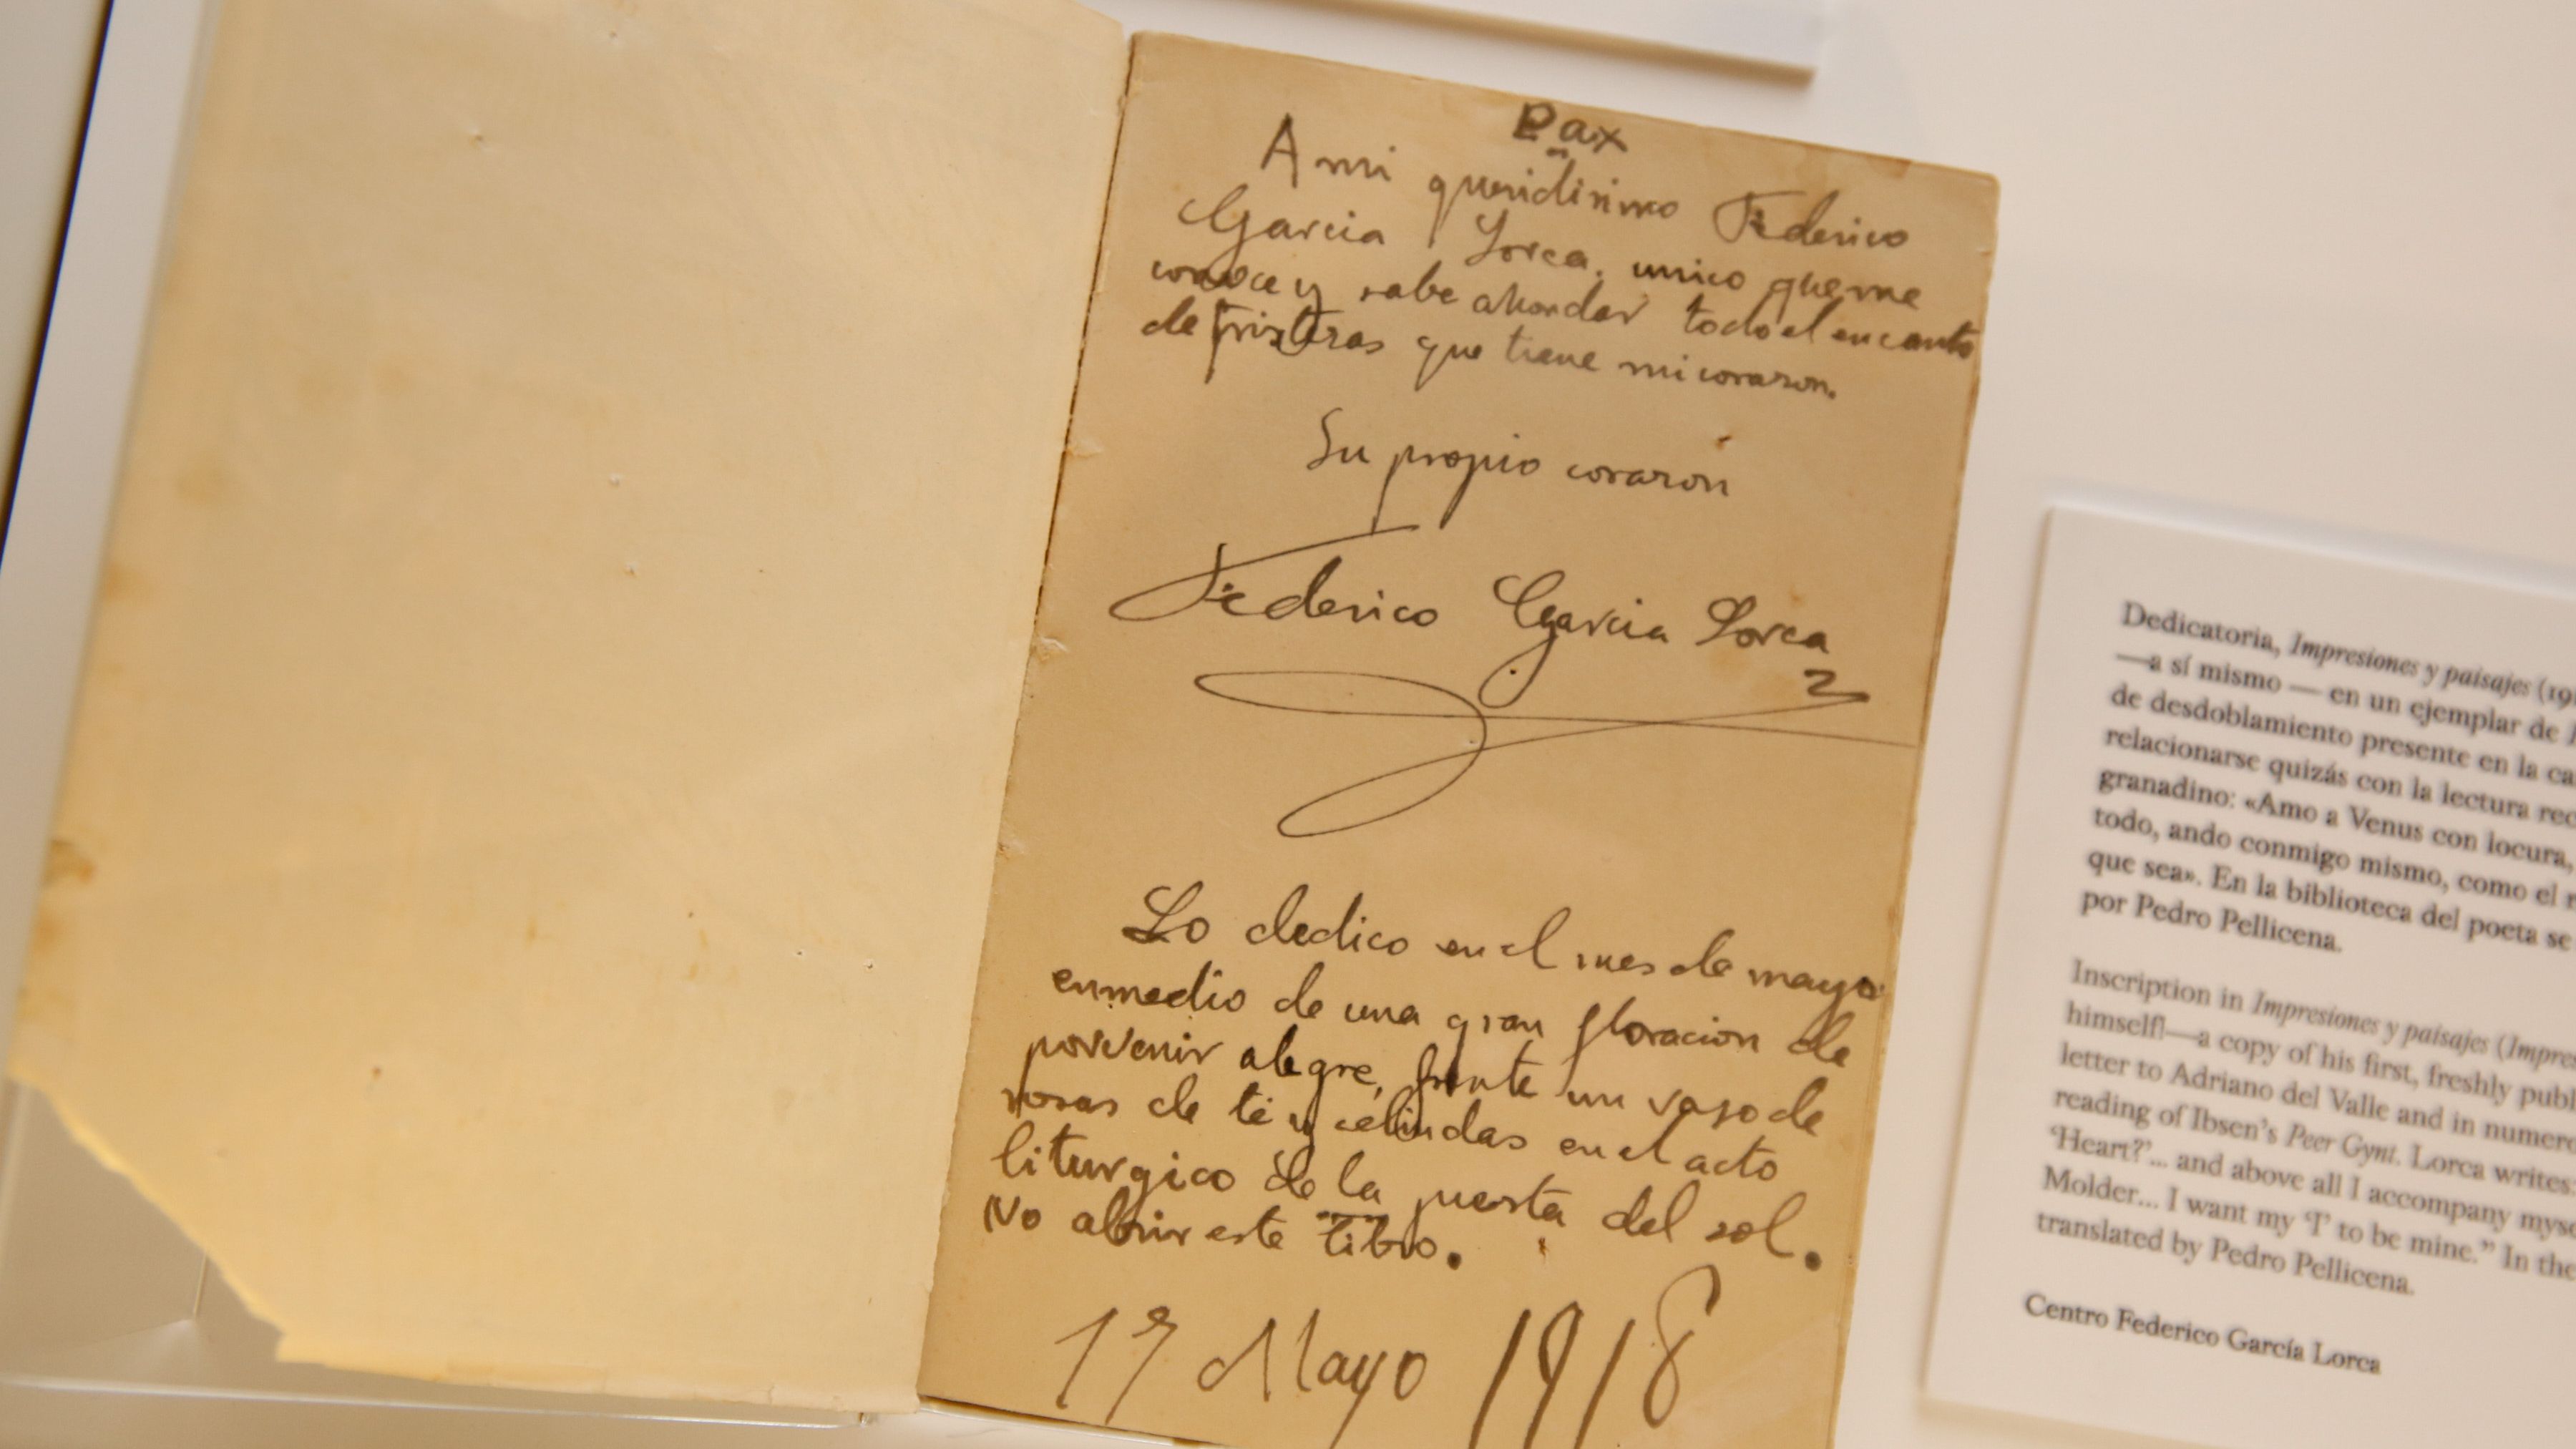 Pax
A mi queridisimo Federico
Garcia Lorca, unico que me
conoce y sabe ahondar todo el encanto
de tristezas que tiene mi corazon.
Su propio corazón
Federico Garcia Lorca
Lo dedico en el mes de mayo
enmedio de una gran floracion de
porvenir alegre, frente un vaso de
rosas de té y celindas en el acto
liturgico de la puesta del sol.
No abrir este libro.
19 Mayo 1918
Dedicatoria, Impresiones y paisajes (19
—a sí mismo — en un ejemplar de
de desdoblamiento presente en la
relacionarse quizás con la lectura
granadino: «Amo a Venus con locura,
todo, ando conmigo mismo, como el
que sea». En la biblioteca del poeta se
por Pedro Pellicena.
Inscription in Impresiones y paisajes
himself]—a copy of his first, freshly
letter to Adriano del Valle and in
reading of Ibsen's Peer Gynt. Lorca writes:
'Heart?'... and above all I accompany
Molder... I want my 'I' to be mine." In the
translated by Pedro Pellicena.
Centro Federico García Lorca